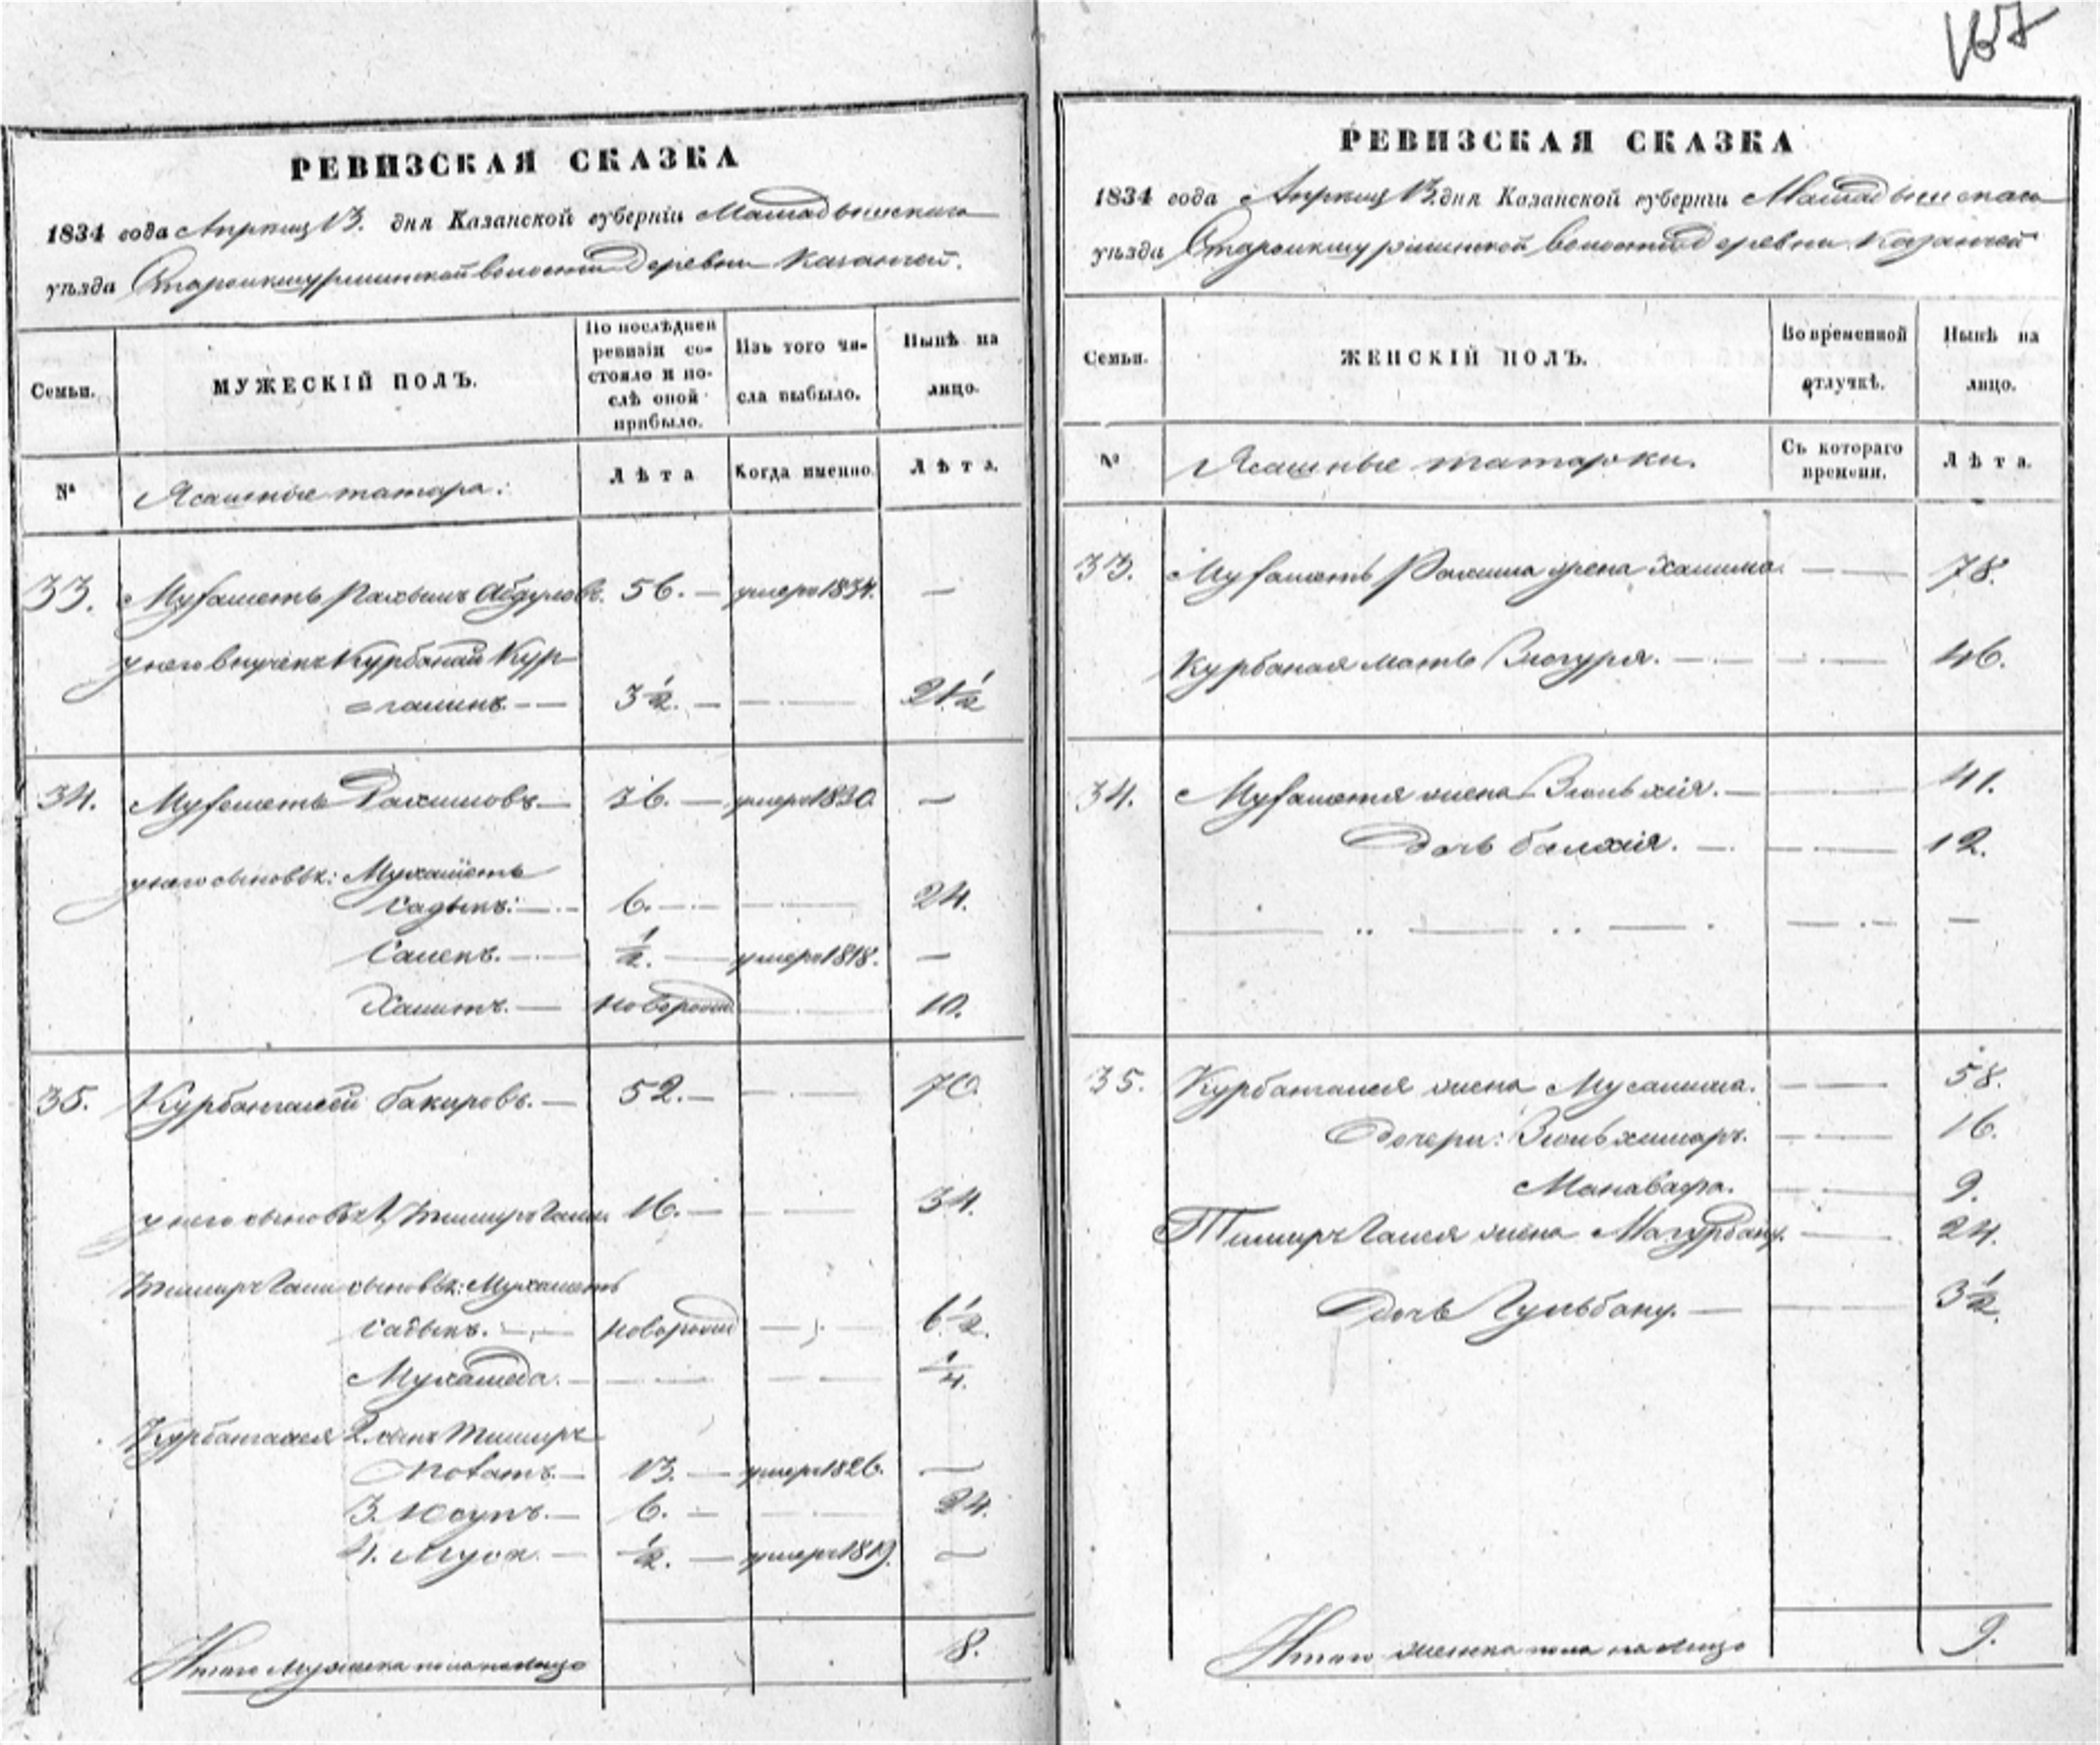 167
РЕВИЗСКАЯ СКАЗКА
1834 года Апреля 13. дня Казанской губерніи Мамадышскаго
уѣзда Старошкшурминской волости Деревни Казанчей.
Семьи.
МУЖЕСКІЙ ПОЛЪ.
По послѣдней ревизіи состояло и послѣ оной прибыло.
Изъ того числа выбыло.
Нынѣ на лицо.
№
Ясашные татара:
Лѣта
Когда именно.
Лѣта.
33. Мухаметь Рахимъ Абдуловъ. 56. — умеръ 1834. —
у него внучекъ Курбанай Кур=
=галинъ — 3½. — — 21½
34. Мухаметь Рахимовъ — 36. — умеръ 1830. —
у него сыновья: Мухаметь
Садыкъ: — 6. — — 24.
Салекъ. — ½. — умеръ 1818. —
Хамитъ. — новорожд — 10.
35. Курбангалей Бакировъ. — 52. — — 70.
у него сыновья 1, Тимиргали 16. — — 34.
Тимиргали сыновья: Мухаметь
Садыкъ. — новорожд — 6½.
Мухамеда. — — — ¼.
Курбангалея 2. сынъ Тимиръ
13. — умеръ 1826. —
3. Юсупъ. — 6. — — 24.
4. Муса. — ½. — умеръ 1819. —
Итого Мужеска пола на лицо 8.
РЕВИЗСКАЯ СКАЗКА
1834 года Апреля 13. дня Казанской губерніи Мамадышскаго
уѣзда Старошкшурминской волости Деревни Казанчей
Семьи.
ЖЕНСКІЙ ПОЛЪ.
Во временной отлучкѣ.
Нынѣ на лицо.
№
Ясашные татарки.
Съ котораго времени.
Лѣта.
33. Мухаметь Рахима жена Халима. — — 78.
Курбаная мать Бюгуря. — — — 46.
34. Мухаметя жена Зюльхія. — — 41.
Дочь Балхія. — — 12.
35. Курбангалея жена Мусалима. — — 58.
Дочери: Зюльхимаръ. — — 16.
Манавара. — — 9.
Тимиргалея жена Магурбану. — 24.
Дочь Гульбану. — — 3½.
Итого женска пола на лицо 9.